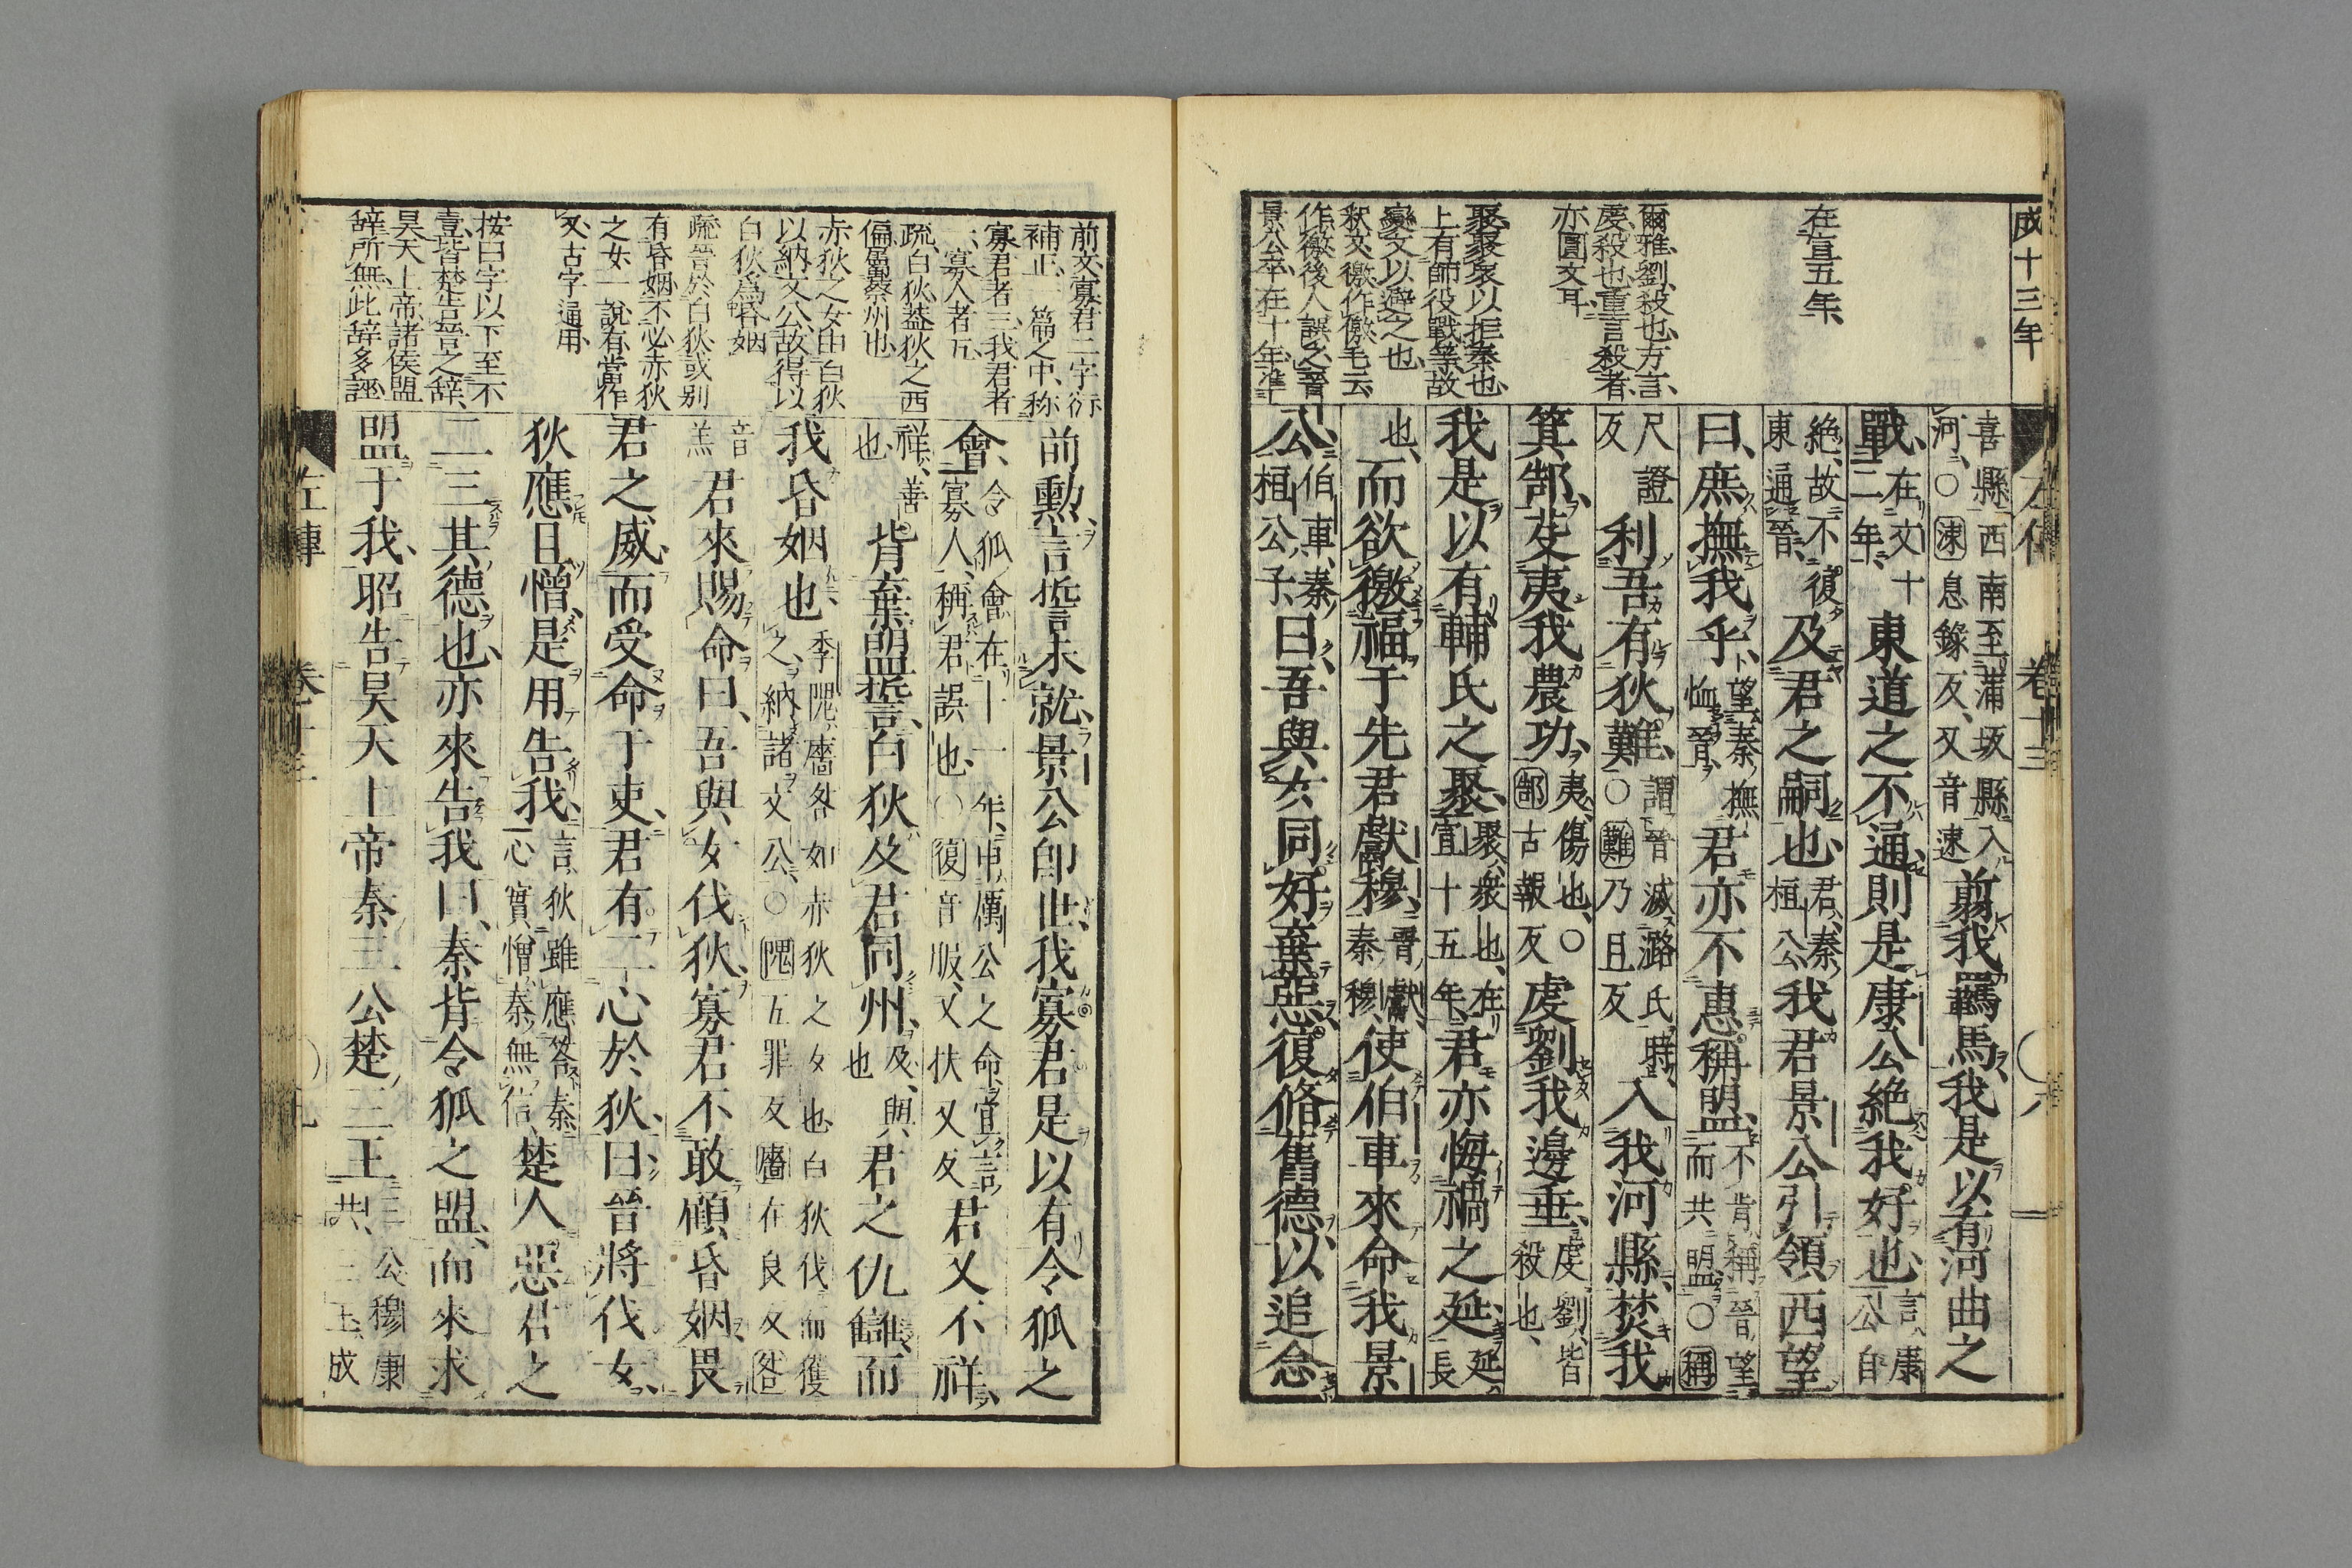 成十三年
在宣五年、
爾雅、劉、殺也、方言、
虔、殺也、重言殺者、
亦圓文耳、
聚、聚衆以拒秦也、
上有師役戰等、故
變文以避之也、
釈文、徼作儌、毛云
作徼後人誤之、晉
景公卒、在十年、準
喜縣西南至蒲坂縣入河、○涑息錄反、又音速翦我羈馬、我是以有河曲之
戰、在文十二年、東道之不通、則是康公絕我好也、言康公自
絶、故不復東通晉、及君之嗣也、君、秦桓公我君景公引領西望
曰、庶撫我乎、望秦撫恤晉、君亦不惠稱盟、不肯稱晉望而共盟、○稱
尺證反利吾有狄難、謂晉滅潞氏時、○難乃且反入我河縣、焚我
箕郜、芟夷我農功、夷、傷也、○郜古報反虔劉我邊垂、虔、劉、皆殺也、
我是以有輔氏之聚、聚、衆也、在宣十五年、君亦悔禍之延、延、長
也、而欲徼福于先君獻穆、晉獻、秦穆、使伯車來命我景
公、伯車、秦桓公子、曰、吾與女同好棄惡、復脩舊德、以追念
前文寡君二字衍
補正、一篇之中、称
寡君者三、我君者
一、寡人者五、
疏、白狄、蓋狄之西
偏屬雍州也
赤狄之女由白狄
以納文公、故得以
白狄爲昏姻
疏晉於白狄或別
有昏姻、不必赤狄
之女、一說有當作
又、古字通用、
按曰字以下至不
壹、皆楚告晉之辭、
昊天上帝、諸侯盟
辭所無、此辞多誣
前勳、言誓未就、景公卽世、我寡君是以有令狐之
會、令狐會在十一年、申厲公之命、宜言寡人、稱君誤也、○復音服、又扶又反君又不祥、
祥、善也、背棄盟誓、白狄及君同州、及、與也君之仇讎、而
我昏姻也、季隗、廧咎如赤狄之女也、白狄伐而獲之、納諸文公、○隗五罪反廧在良反咎
音羔君來賜命曰、吾與女伐狄、寡君不敢顧昏姻、畏
君之威、而受命于吏、君有二心於狄、曰、晉將伐女、
狄應且憎、是用告我、言狄雖應答秦、心實憎秦無信、楚人惡君之
二三其德也、亦來告我曰、秦背令狐之盟、而來求
盟于我、昭告昊天上帝、秦三公、楚三王、三公、穆康共、三王、成
左傳
卷十三